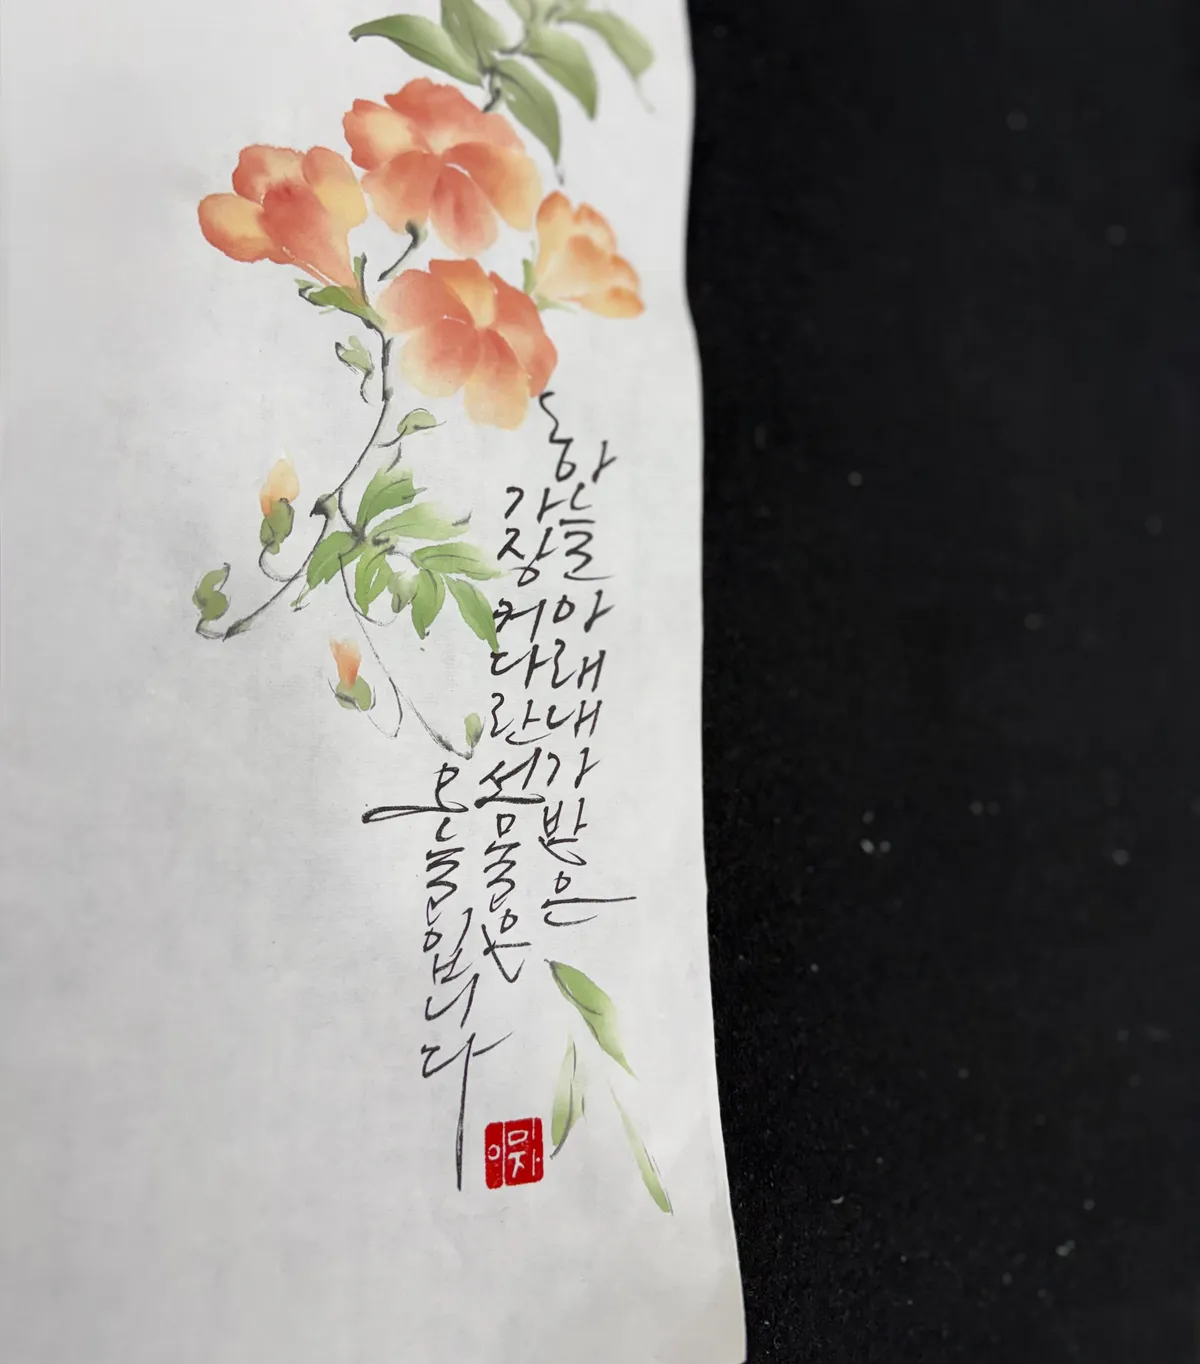 하늘 아래 내가 받은
가장 커다란 선물은
오늘입니다
이미자